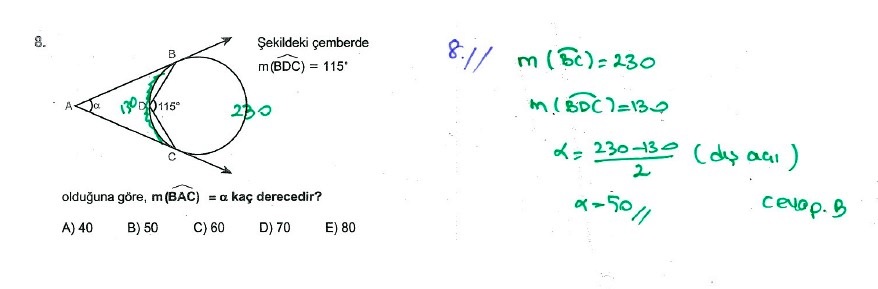 8.
Şekildeki çemberde
m(BDC) = 115°
B
A
α
130
D
115°
230
C
olduğuna göre, m(BAC) = α kaç derecedir?
A) 40 B) 50 C) 60 D) 70 E) 80
8.//
m(BC)=230
m(BDC)=130
α = 230-130 / 2 (dış açı)
α=50//
cevap.B